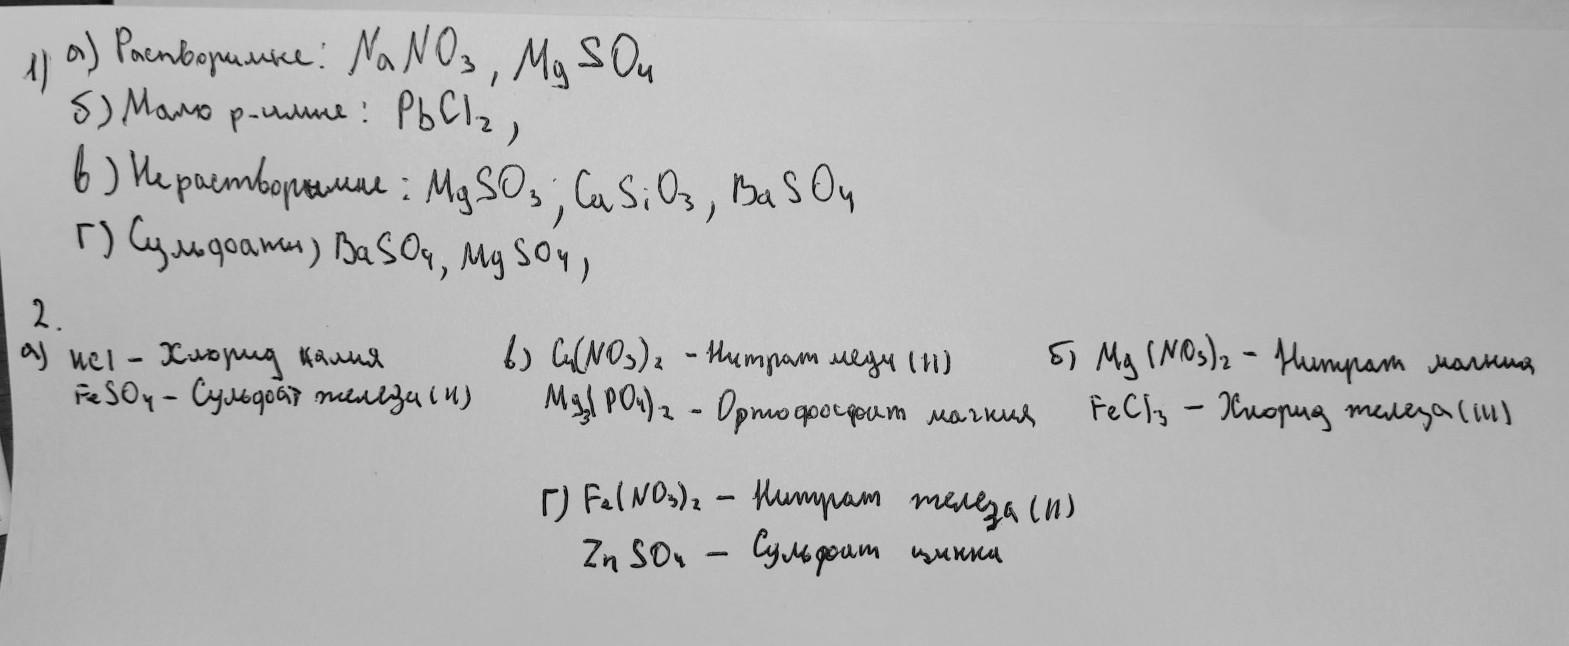 1) а) Растворимые: NaNO3, MgSO4
б) Мало р-имые: PbCl2,
в) Нерастворимые: MgSO3, CaSiO3, BaSO4
г) Сульфаты) BaSO4, MgSO4,
2.
а) KCl – Хлорид калия
FeSO4 – Сульфат железа (II)
в) Cu(NO3)2 – Нитрат меди (II)
Mg3(PO4)2 – Ортофосфат магния
б) Mg(NO3)2 – Нитрат магния
FeCl3 – Хлорид железа (III)
г) Fe(NO3)2 – Нитрат железа (II)
ZnSO4 – Сульфат цинка